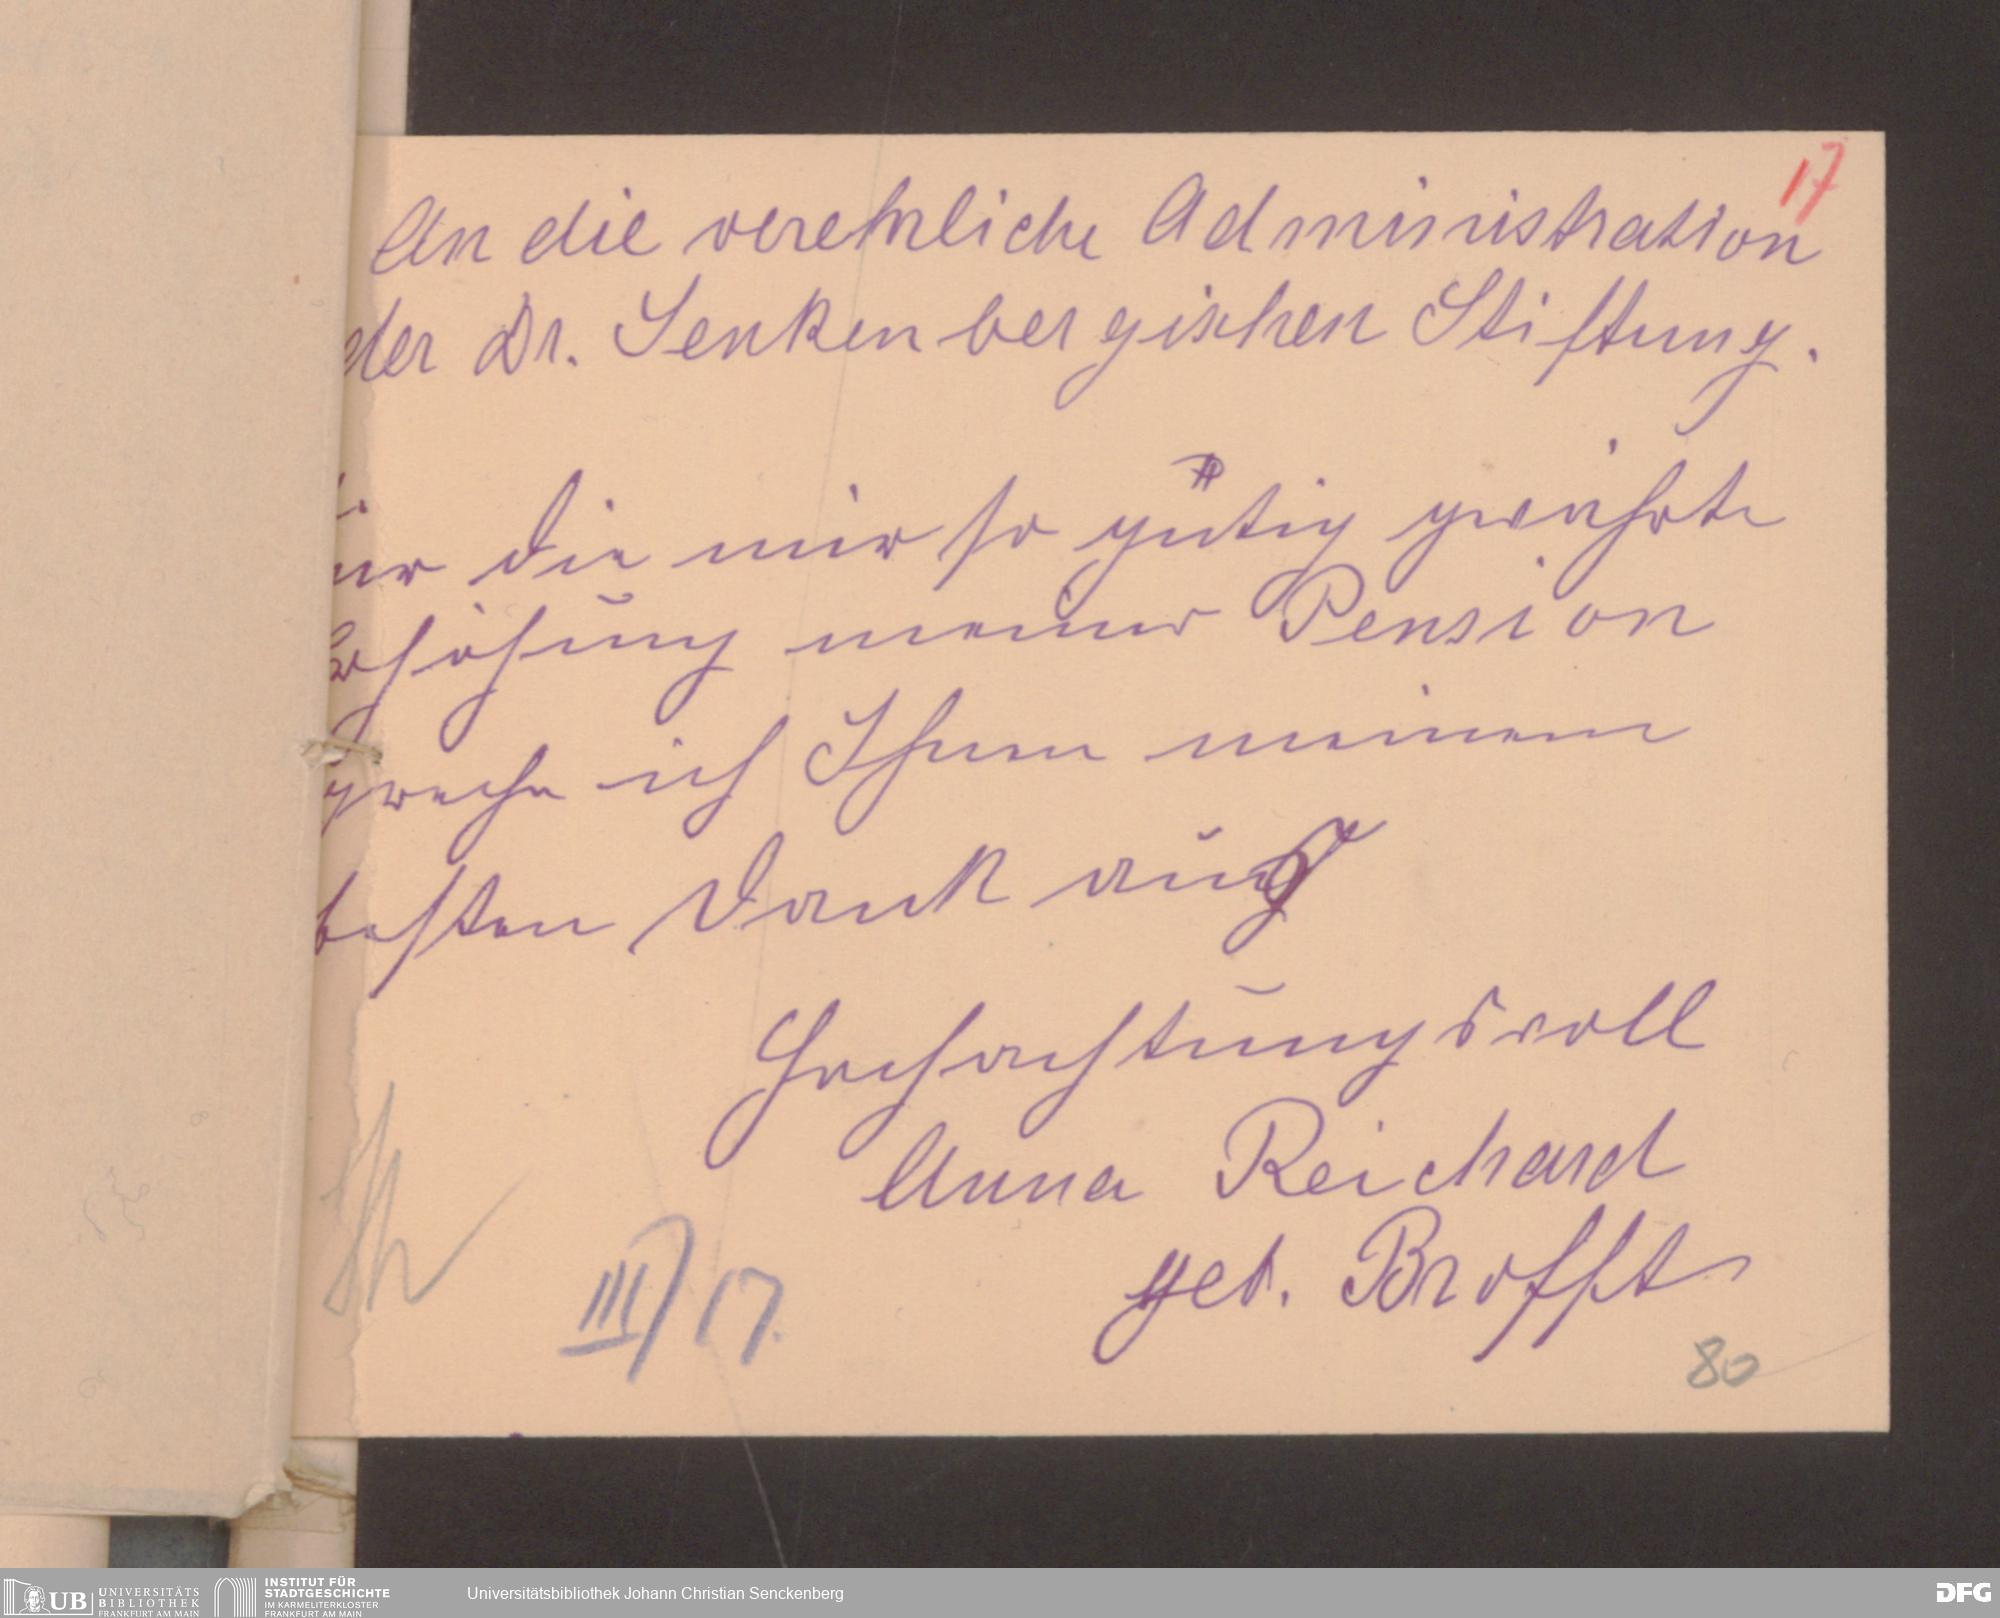 17
An die verehrliche Administration
der Dr. Senkenbergischen Stiftung.
für die mir so gütig gewährte
Erhöhung meiner Pension
spreche ich Ihnen meinem
besten Dank aus
Hochachtungsvoll
Anna Reichard
geb. Brofft
III/17.
80
UB UNIVERSITÄTS
BIBLIOTHEK
FRANKFURT AM MAIN
INSTITUT FÜR
STADTGESCHICHTE
IM KARMELITERKLOSTER
FRANKFURT AM MAIN
Universitätsbibliothek Johann Christian Senckenberg
DFG